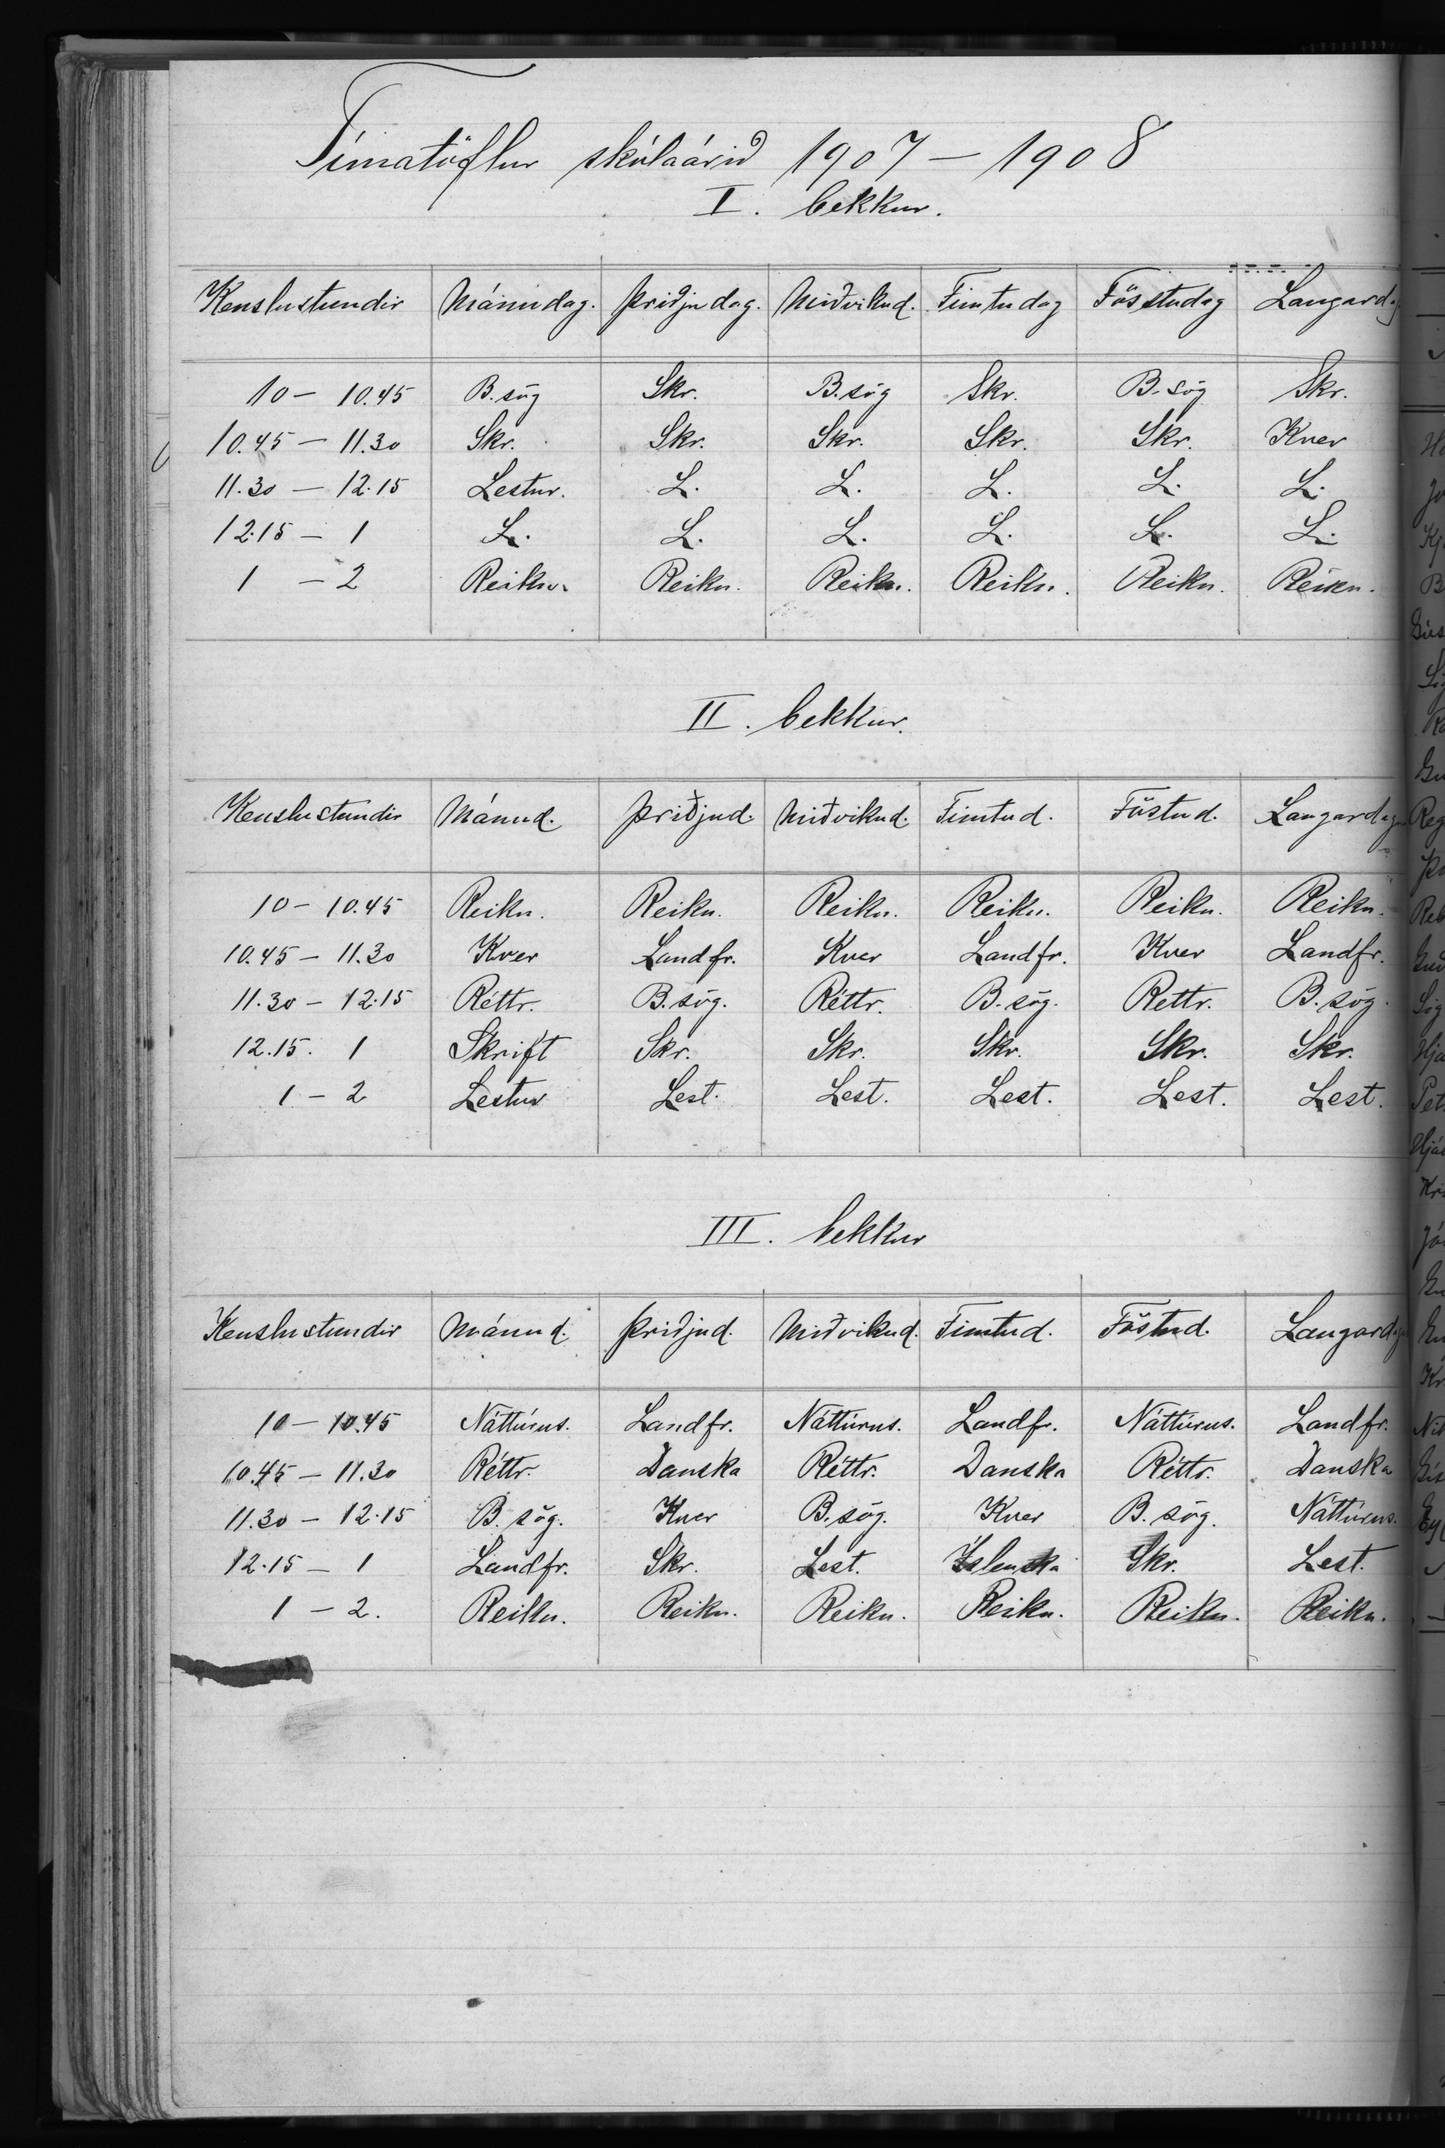 Tímatöflur skólaárið 1907 – 1908
I. bekkur.
Kenslustundir Mánudag. Þriðjudag. Miðvikud. Fimtudag Föstudag Laugardag
10 – 10.45 B.sög Skr. B.sög Skr. B.sög Skr.
10.45 – 11.30 Skr. Skr. Skr. Skr. Skr. Kver
11.30 – 12.15 Lestur. L. L. L. L. L.
12.15 – 1 L. L. L. L. L. L.
1 – 2 Reikn. Reikn. Reikn. Reikn. Reikn. Reikn.
II. bekkur.
Kenslustundir Mánud. Þriðjud. Miðvikud. Fimtud. Föstud. Laugardag
10 – 10.45 Reikn. Reikn. Reikn. Reikn. Reikn. Reikn.
10.45 – 11.30 Kver Landfr. Kver Landfr. Kver Landfr.
11.30 – 12.15 Réttr. B.sög. Réttr. B.sög. Rettr. B.sög.
12.15. 1 Skrift Skr. Skr. Skr. Skr. Skr.
1 – 2 Lestur Lest. Lest. Lest. Lest. Lest.
III. bekkur
Kenslustundir Mánud. Þriðjud. Miðvikud. Fimtud. Föstud. Laugardag
10 – 10.45 Náttúrus. Landfr. Náttúrus. Landfr. Náttúrus. Landfr.
10.45 – 11.30 Réttr. Danska Réttr. Danska Réttr. Danska
11.30 – 12.15 B. sög. Kver B.sög. Kver B. sög. Náttúrus.
12.15 – 1 Landfr. Skr. Lest. Íslenska Skr. Lest.
1 – 2. Reikn. Reikn. Reikn. Reikn. Reikn. Reikn.